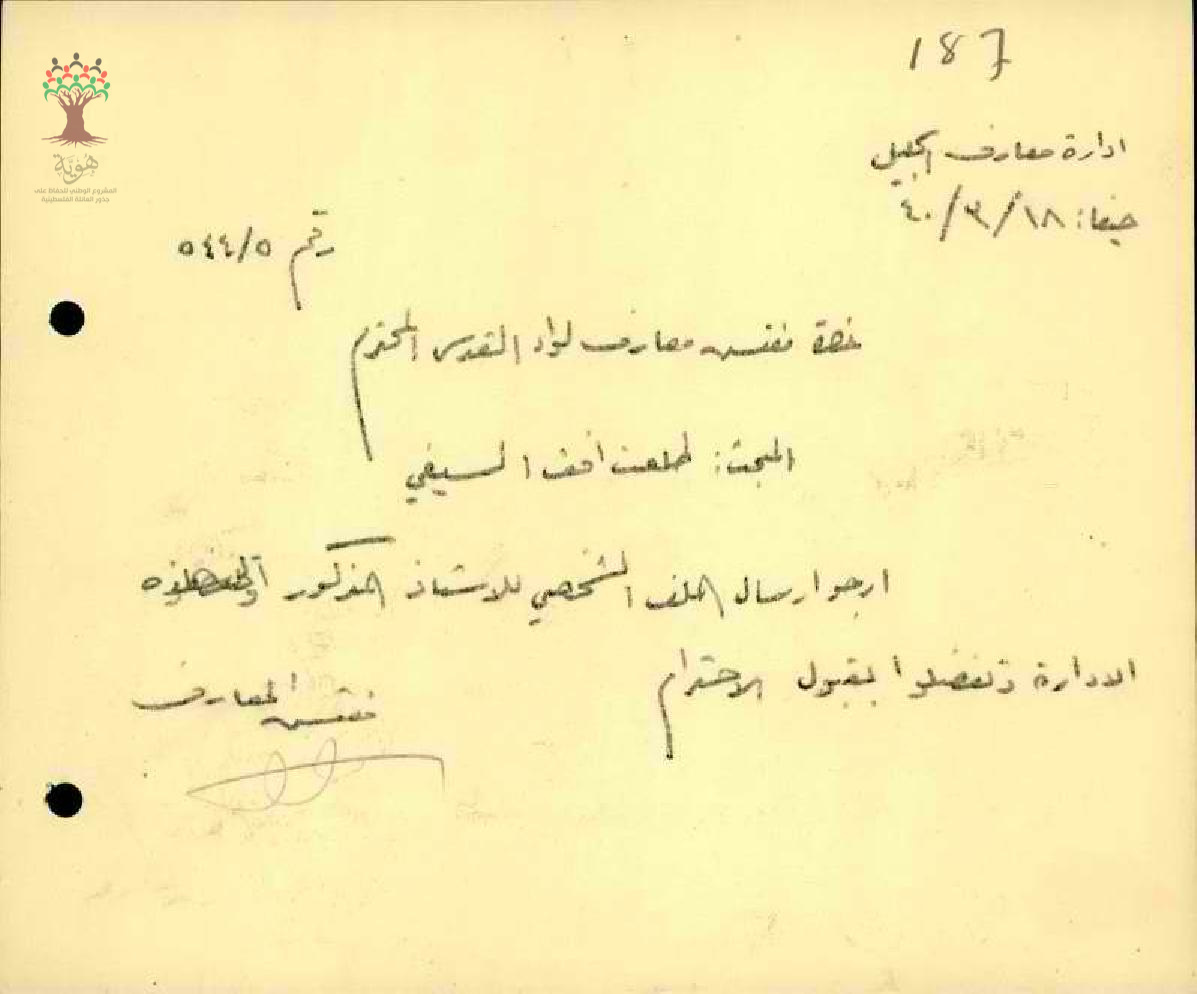 187
هوية
المشروع الوطني للحفاظ على
جذور العائلة الفلسطينية
ادارة معارف الجليل
حيفا: ١٨/٣/٤٠
رقم ٥٤٤/٥
حضرة مفتش معارف لواء القدس المحترم
المبحث: طلعت افندي السيفي
ارجو ارسال الملف الشخصي للاستاذ المذكور الى هذه
الادارة وتفضلوا بقبول الاحترام
مفتش المعارف